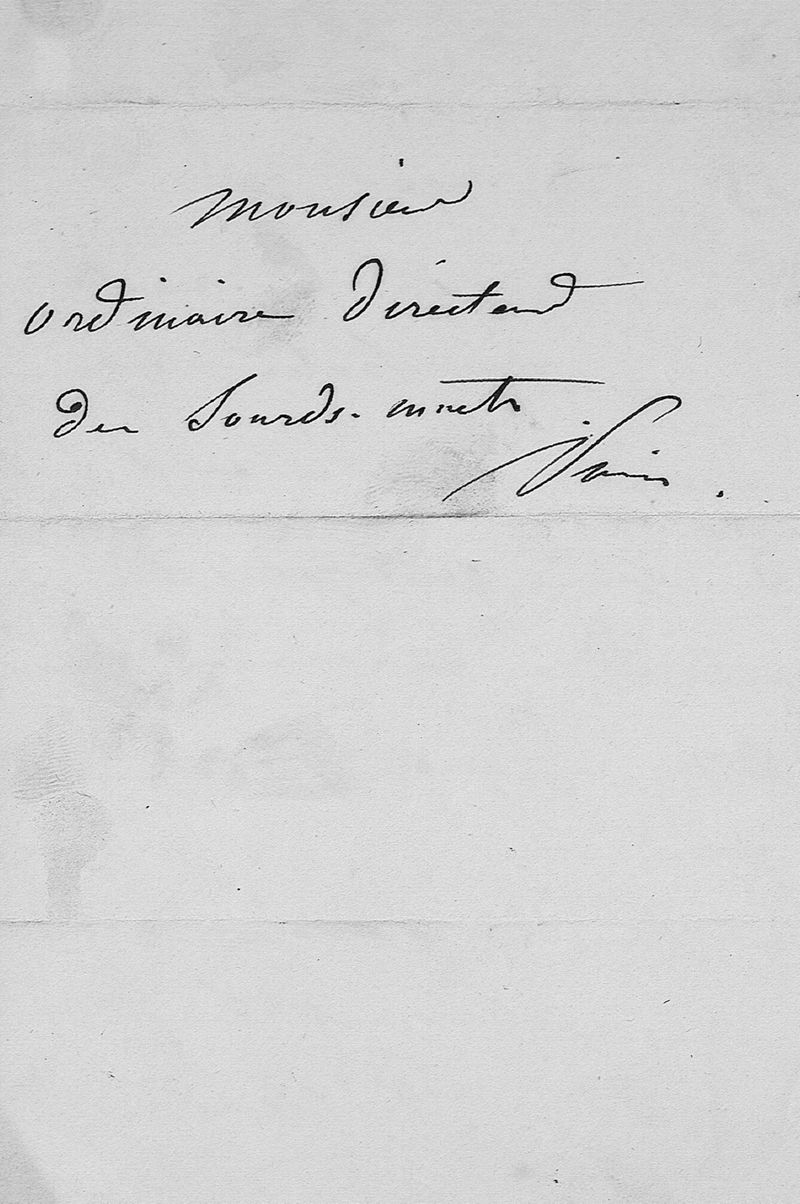 Monsieur
Ordinaire Directeur
des Sourds-muets
Paris.